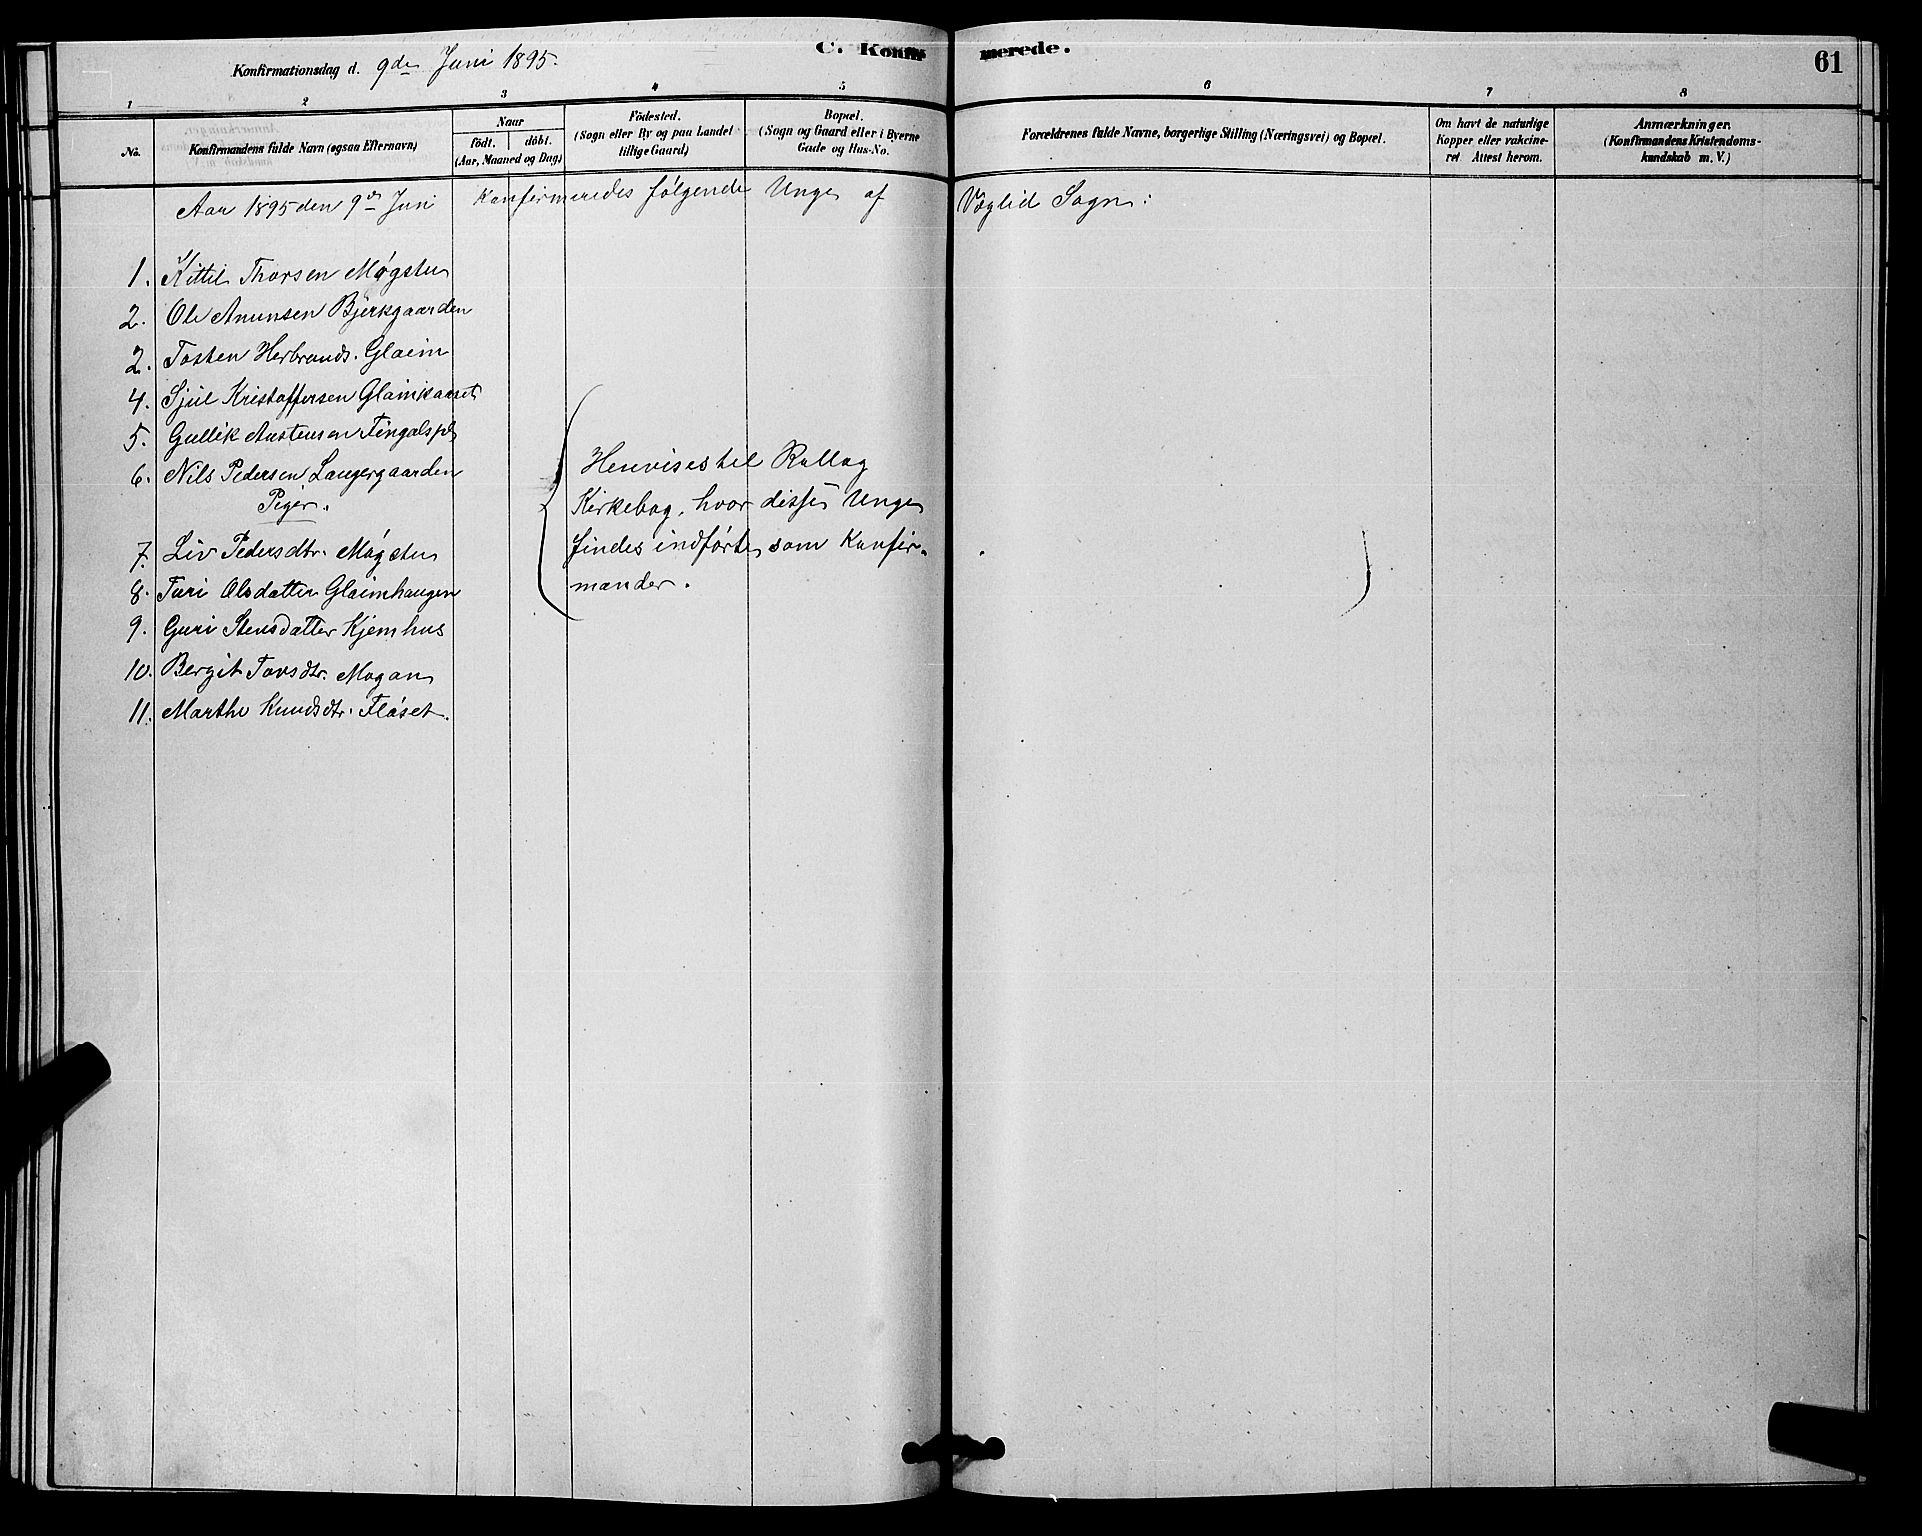 C. Konfirmerede.
61
Konfirmationsdag d. 9de Juni 1895.
1 2 3 4 5 6 7 8
No.
Konfirmandens fulde Navn (ogsaa Efternavn)
Naar
födt. döbt.
(Aar, Maaned og Dag)
Födested.
(Sogn eller By og paa Landet
tillige Gaard)
Bopæl.
(Sogn og Gaard eller i Byerne
Gade og Hus-No.
Forældrenes fulde Navne, borgerlige Stilling (Næringsvei) og Bopæl.
Om havt de naturlige
Kopper eller vakcine-
ret Attest herom.
Anmærkninger.
(Konfirmandens Kristendoms-
kundskab m. V.)
Aar 1895 den 9de Juni Konfirmeredes følgende Unge af Væglid Sogn:
1. Kittil Thorsen Møgsten
2. Ole Amunsen Bjerkgaarden
2. Tosten Herbrands. Glaim
4. Sjul Kristoffersen Glaimkaaset
5. Gullik Austensen Tingalspl
6. Nils Pedersen Langergaarden
Piger.
7. Liv Pedersdtr. Møgsten
8. Turi Olsdatter Glaimhaugen
9. Guri Stensdatter Kjemhus
10. Bergit Tovsdtr. Mogan
11. Marthe Knudsdtr. Fløset.
Henvises til Rollag
Kirkebog, hvor disse Unge
findes indførte som Konfir-
mander.